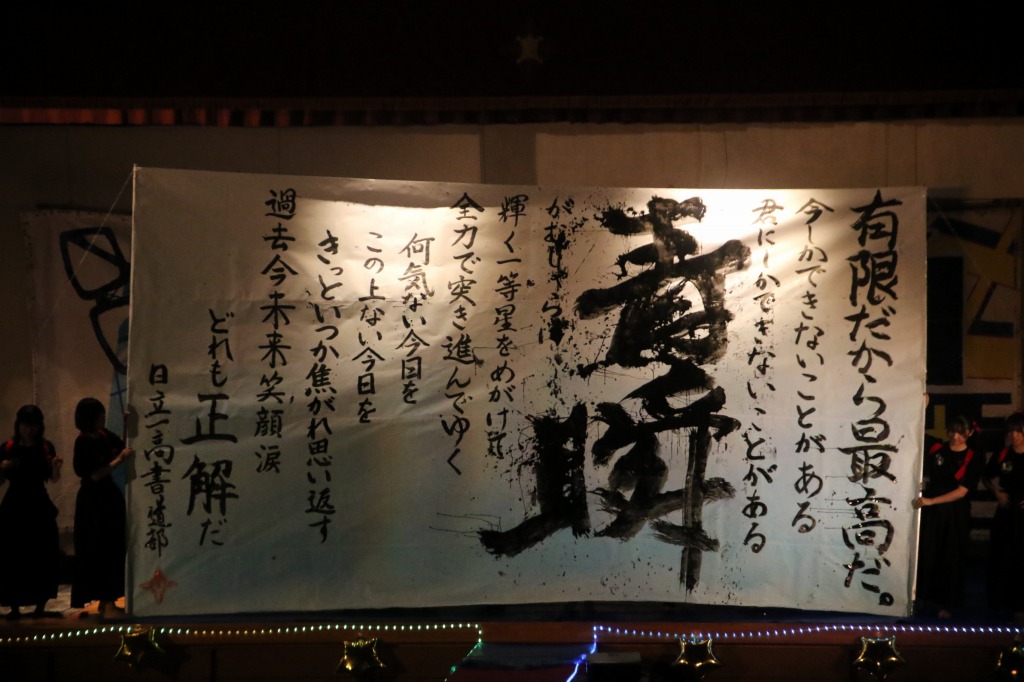 有限だから最高だ。
今しかできないことがある
君にしかできないことがある
がむしゃらに
輝く一等星をめがけて
全力で突き進んでゆく
何気ない今日を
この上ない今日を
きっといつか焦がれ思い返す
過去今未来笑顔涙
どれも正解だ
日立一高書道部